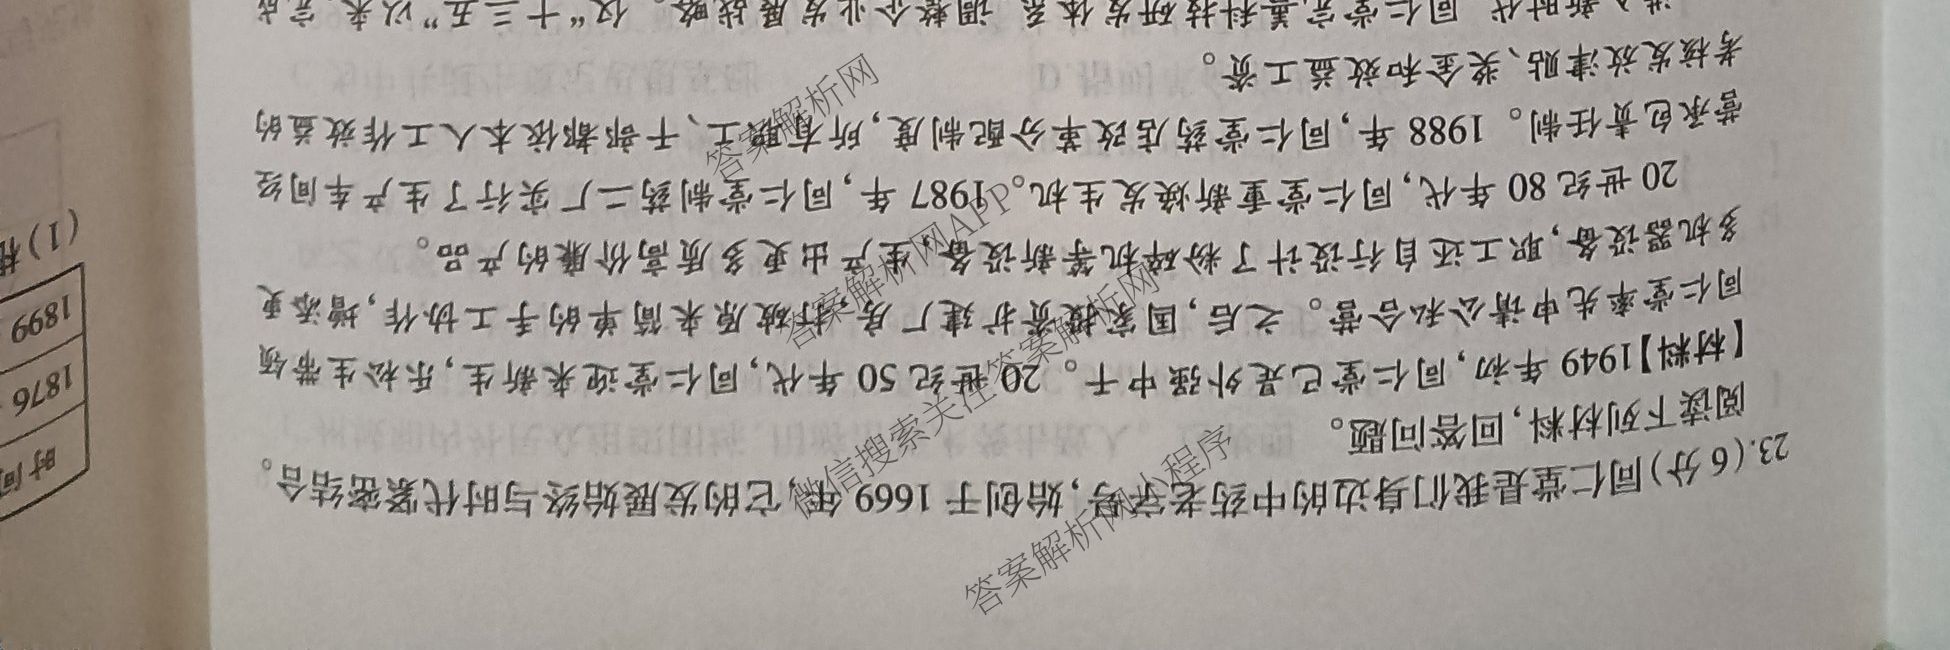 23.(6分)同仁堂是我们身边的中药老字号,始创于1669年,它的发展始终与时代紧密结合。
阅读下列材料,回答问题。
【材料】1949年初,同仁堂已是外强中干。20世纪50年代,同仁堂迎来新生,乐松生带领
同仁堂率先申请公私合营。之后,国家投资扩建厂房,打破原来简单的手工协作,增添更
多机器设备,职工还自行设计了粉碎机等新设备,生产出更多质高价廉的产品。
20世纪80年代,同仁堂重新焕发生机。1987年,同仁堂制药二厂实行了生产车间经
营承包责任制。1988年,同仁堂药店改革分配制度,所有职工、干部都依本人工作效益的
考核发放津贴、奖金和效益工资。
进入新时代,同仁堂完善科技研发体系,调整企业发展战略。仅“十三五”以来,完成
时间
1876
1899
(1)
答案解析网
答案解析网APP
微信搜索关注答案解析网
答案解析网小程序